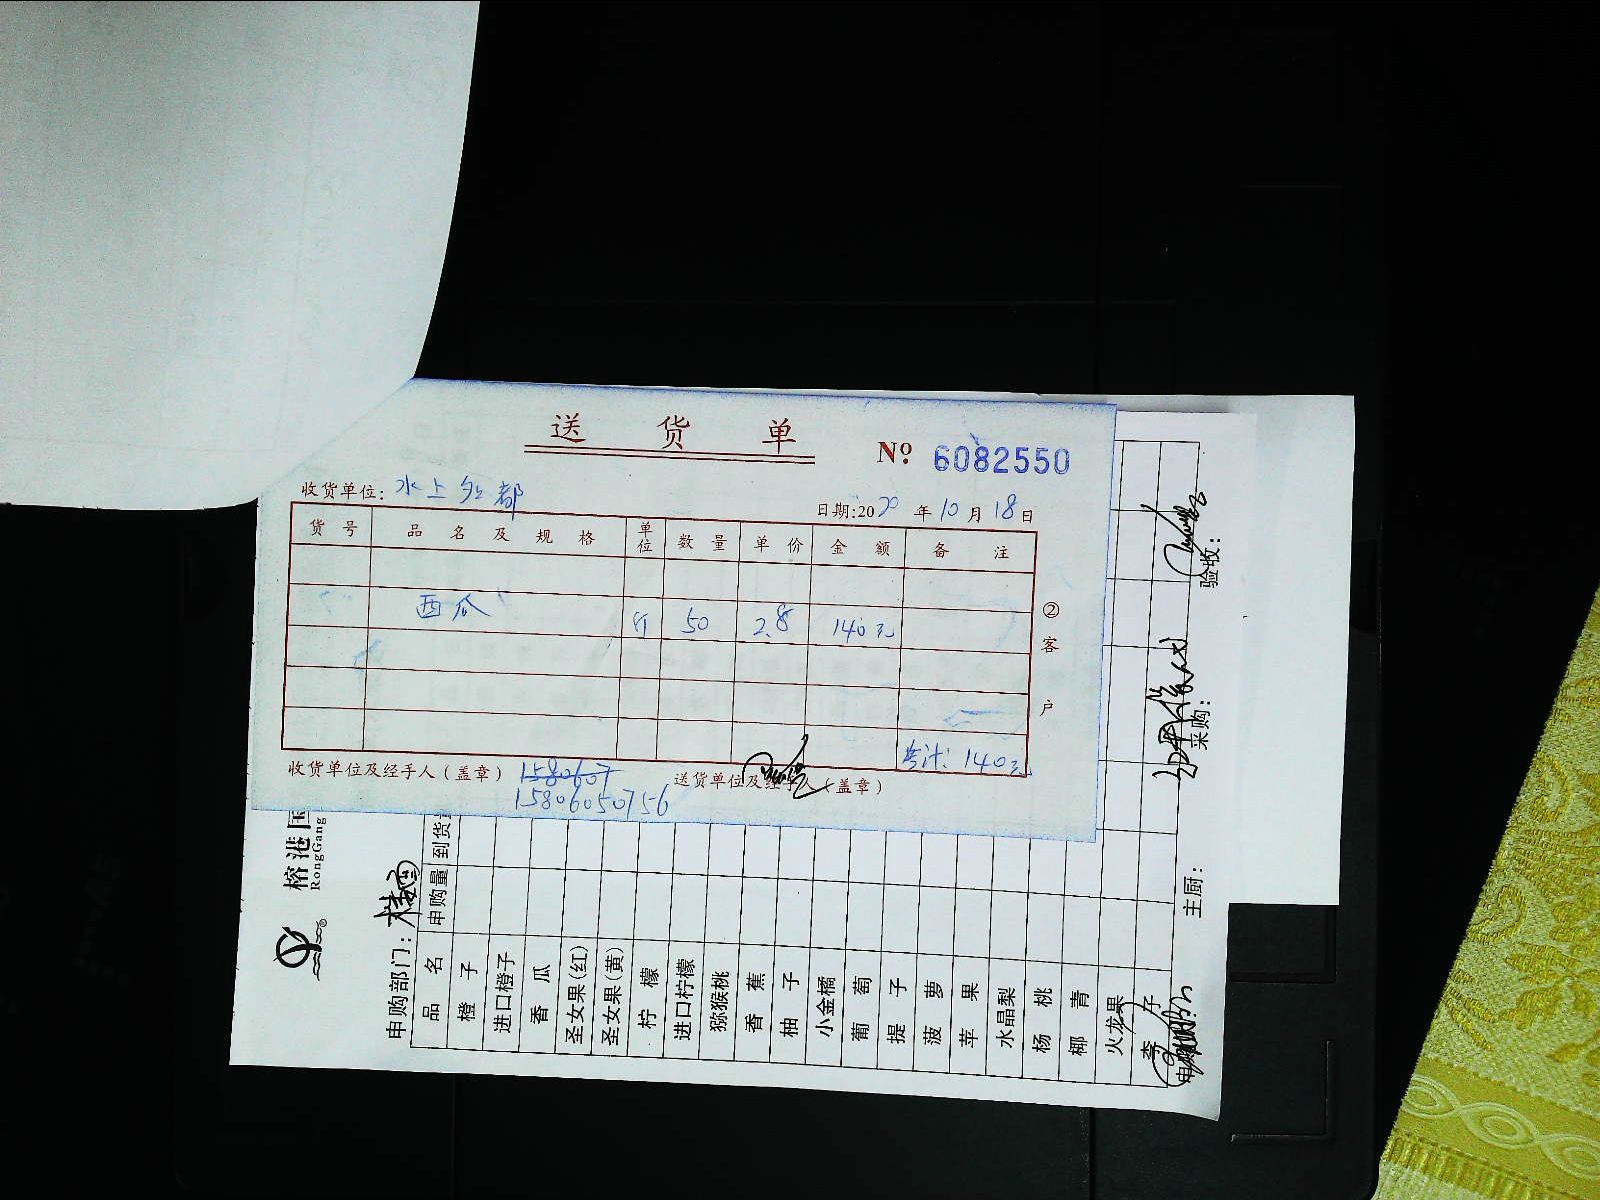 送 货 单
№ 6082550
收货单位: 水上红都
日期:2020 年 10 月 18 日
货号 品名及规格 单位 数量 单价 金额 备注
西瓜 斤 50 2.8 140元
合计: 140元
②客户
收货单位及经手人(盖章) 1580607 送货单位及经手人(盖章)
15806050756
榕港国
RongGang
申购部门:
品名 申购量 到货
橙子
进口橙子
香瓜
圣女果(红)
圣女果(黄)
柠檬
进口柠檬
猕猴桃
香蕉
柚子
小金橘
葡萄
提子
菠萝
苹果
水晶梨
杨桃
椰青
火龙果
李子
主厨:
采购:
验收: